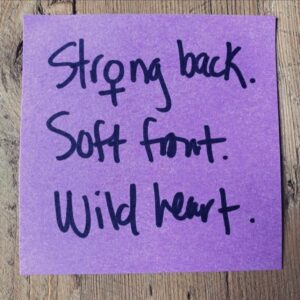 Str♀ng back.
Soft front.
Wild heart.